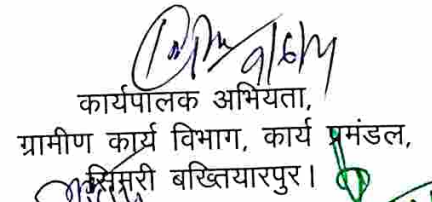 कार्यपालक अभियता,
ग्रामीण कार्य विभाग, कार्य प्रमंडल,
सिमरी बख्तियारपुर।